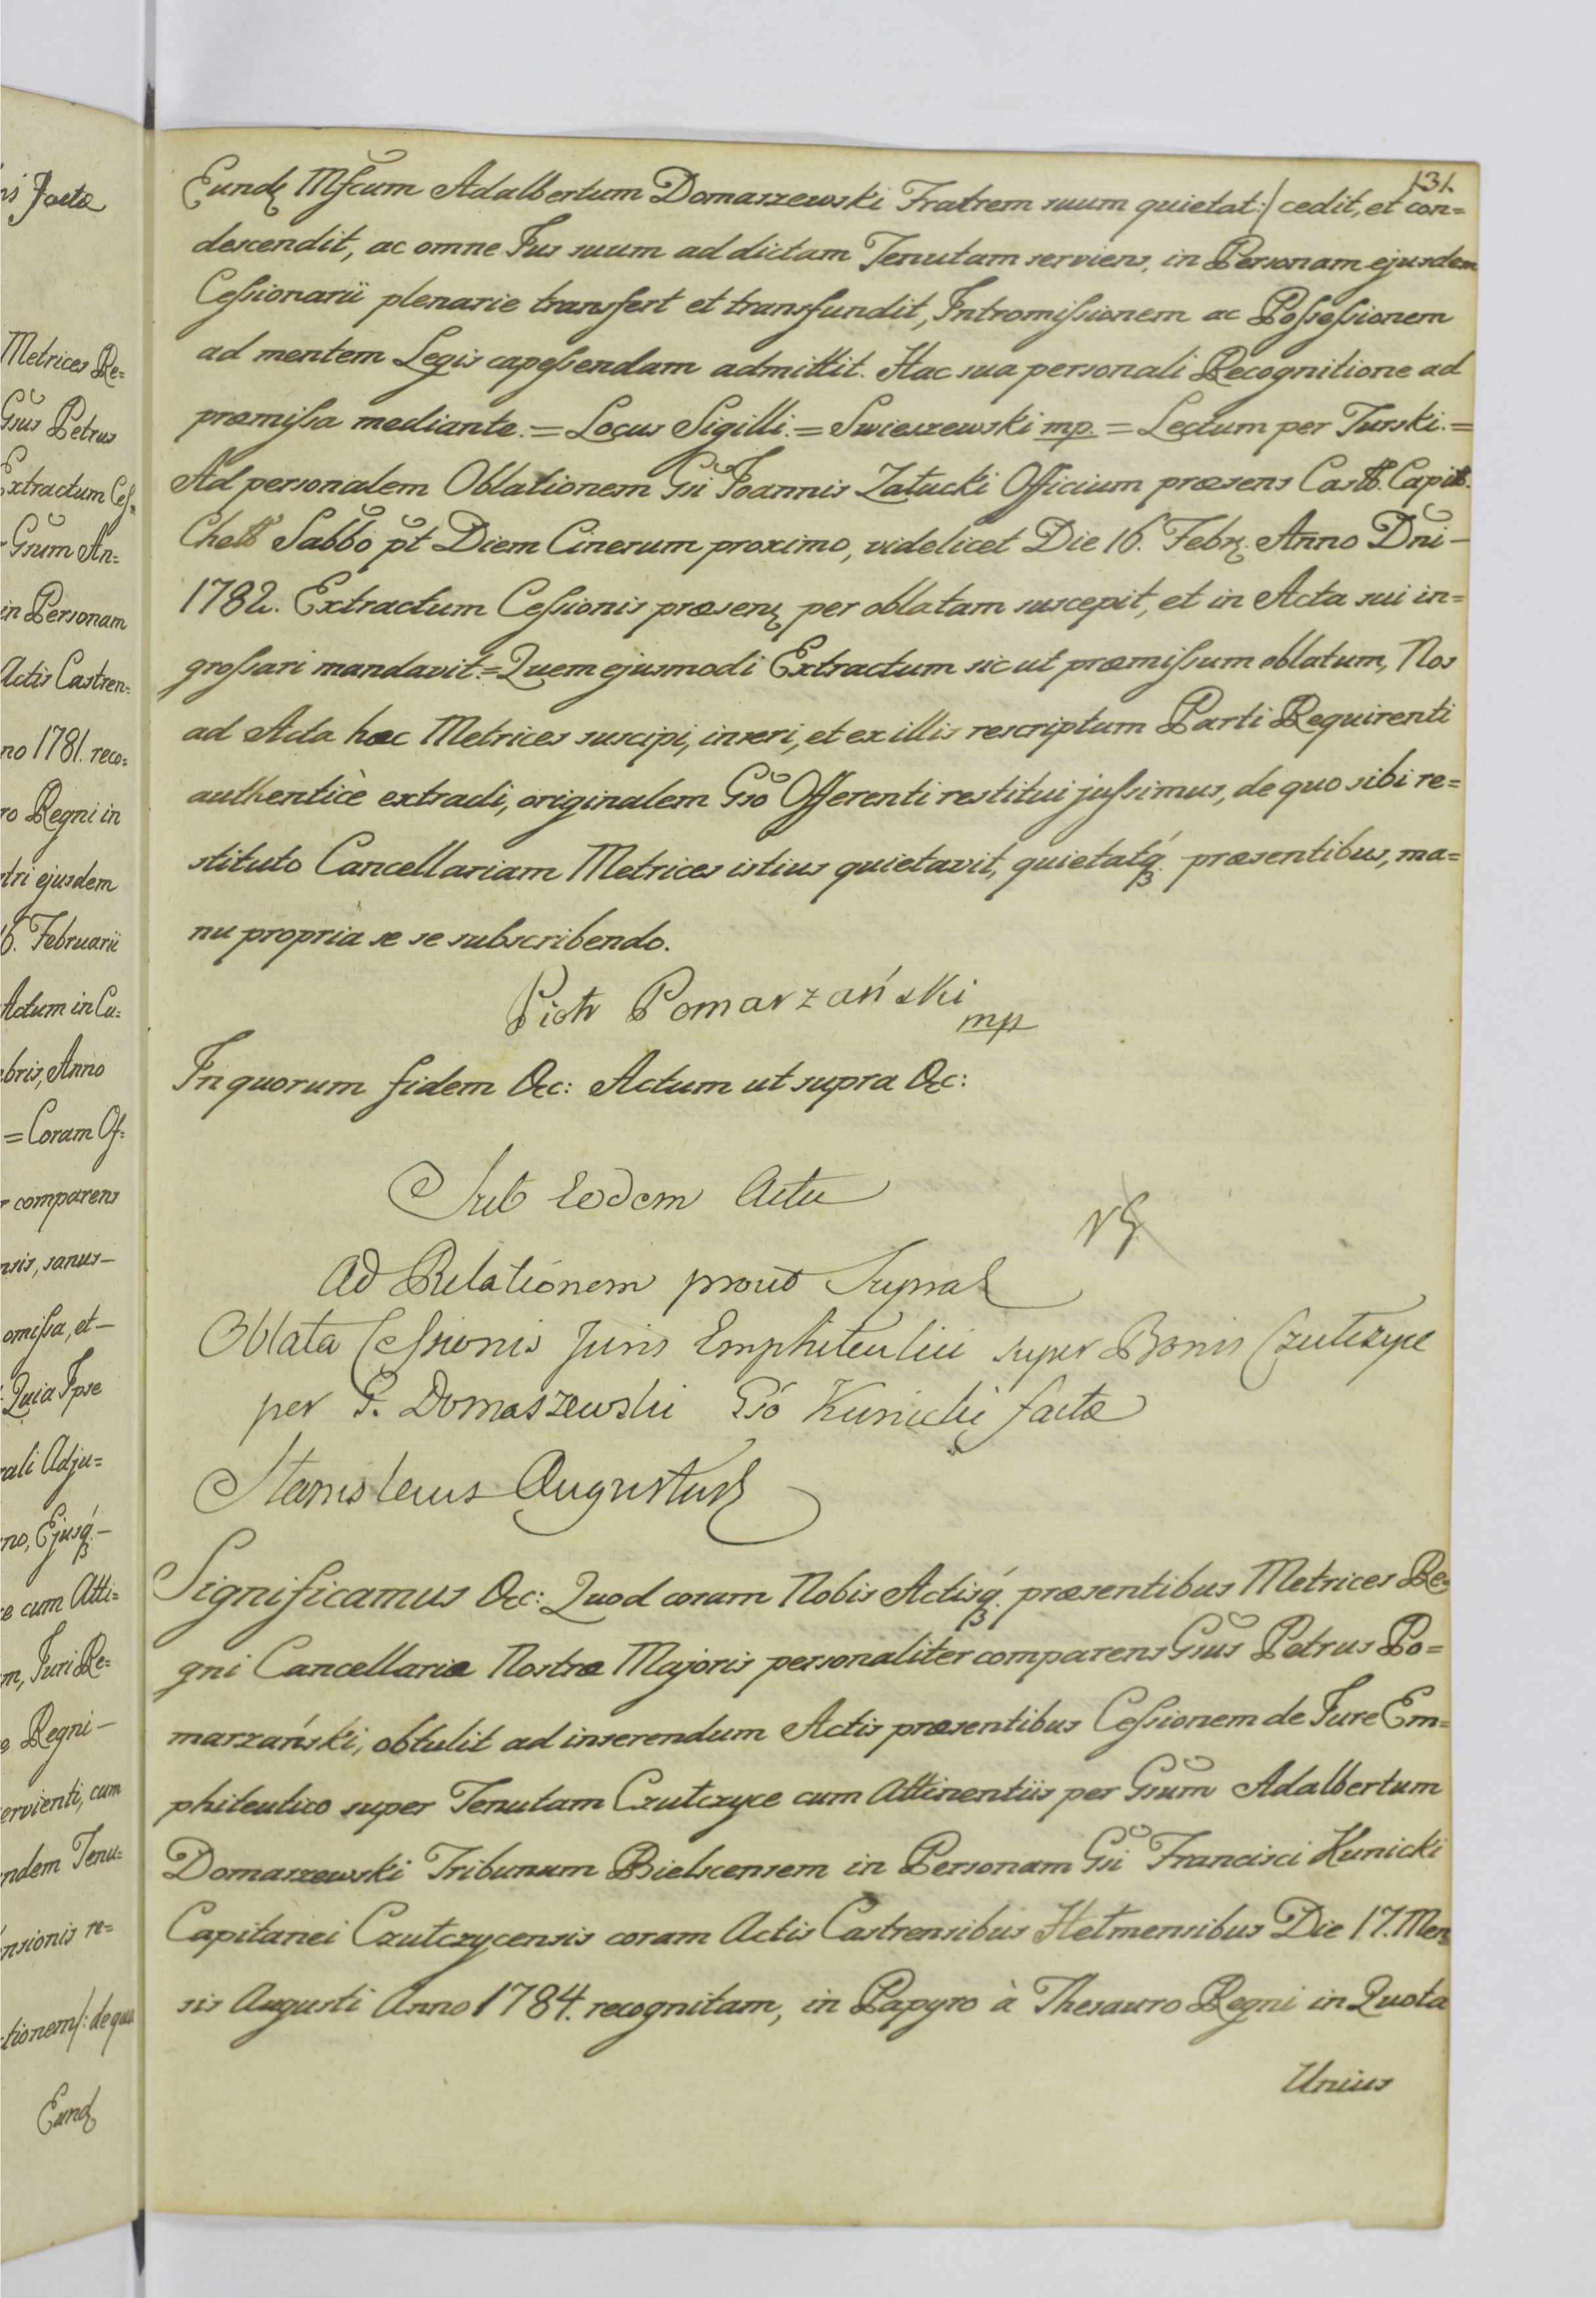 131.
Eundę Mfcum Adalbertum Domaszewski Fratrem suum quietat:/ cedit, et con=
descendit, ac omne Jus suum ad dictam Tenutam serviens, in Personam ejusdem
Cessionarii plenarie transfert et transfundit, Intromissionem ac Possessionem
ad mentem Legis capessendam admittit. Hac sua personali Recognitione ad
præmissa mediante. = Locus Sigilli. = Swieszewski mp. = Lectum per Turski. =
Ad personalem Oblationem Gsi Joannis Załucki Officium præsens Castr. Capitl.
Chelł Sabbo pt Diem Cinerum proximo, videlicet Die 16. Febrę. Anno Dni –
1782. Extractum Cessionis præsenę per oblatam suscepit, et in Acta sui in=
grossari mandavit. = Quem ejusmodi Extractum sicut præmissum oblatum, Nos
ad Acta hæc Metrices suscipi, inseri, et ex illis rescriptum Parti Requirenti
authenticè extradi, originalem Gso Offerenti restitui jussimus, de quo sibi re=
stituto Cancellariam Metrices istius quietavit, quietatq́. præsentibus, ma=
nu propria se se subscribendo.
Piotr Pomarzański
mp
In quorum fidem &c: Actum ut supra &c:
Sub eodem Actu
Ad Relationem prout Supra
Oblata Cessionis Juris Emphiteutici super Bonis Czutczyce
per G. Domaszewski Gso Kunicki factæ
Stanislaus Augustus
Significamus &c: Quod coram Nobis Actisq́. præsentibus Metrices Re=
gni Cancellariæ Nostræ Majoris personaliter comparens Gsus Petrus Po=
marzański, obtulit ad inserendum Actis præsentibus Cessionem de Jure Em=
phiteutico super Tenutam Czutczyce cum Attinentiis per Gsum Adalbertum
Domaszewski Tribunum Bielscensem in Personam Gsi Francisci Kunicki
Capitanei Czutczycensis coram Actis Castrensibus Hełmensibus Die 17. Men=
sis Augusti Anno 1784. recognitam, in Papyro à Thesauro Regni in Quota
Unius
ns factæ
Metrices Re=
Gsus Petrus
Extractum Ces=
Gsum An=
in Personam
Actis Castren=
no 1781. reco=
ro Regni in
tri ejusdem
6. Februarii
Actum in Cu=
bris, Anno
= Coram Of=
comparens
nsis, sanus –
omissa, et –
Quia Ipse
rali Adju=
no, Ejusq́. –
e cum Atti=
m, Juri Re=
e Regni –
ervienti, cum
ndem Tenu=
nsionis re=
tionem/: de qua
Eundę